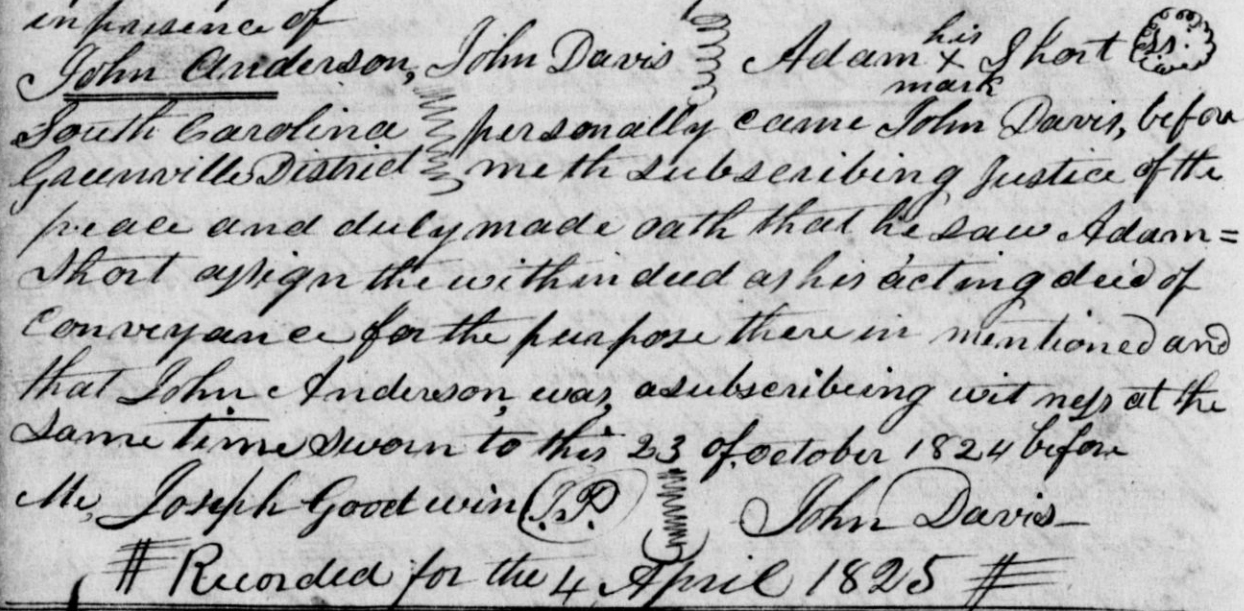 in presence of
John Anderson, John Davis Adam his x mark Short
South Carolina personally came John Davis, before
Greenville District me th subscribing Justice of the
peace and duly made oath that he saw Adam=
Short assign the within deed as his acting deed of
Conveyance for the purpose there in mentioned and
that John Anderson, was, a subscribeing witness at the
same time sworn to this 23 of October 1824 before
Me, Joseph Goodwin J.P. John Davis
# Recorded for the 4 April 1825 #